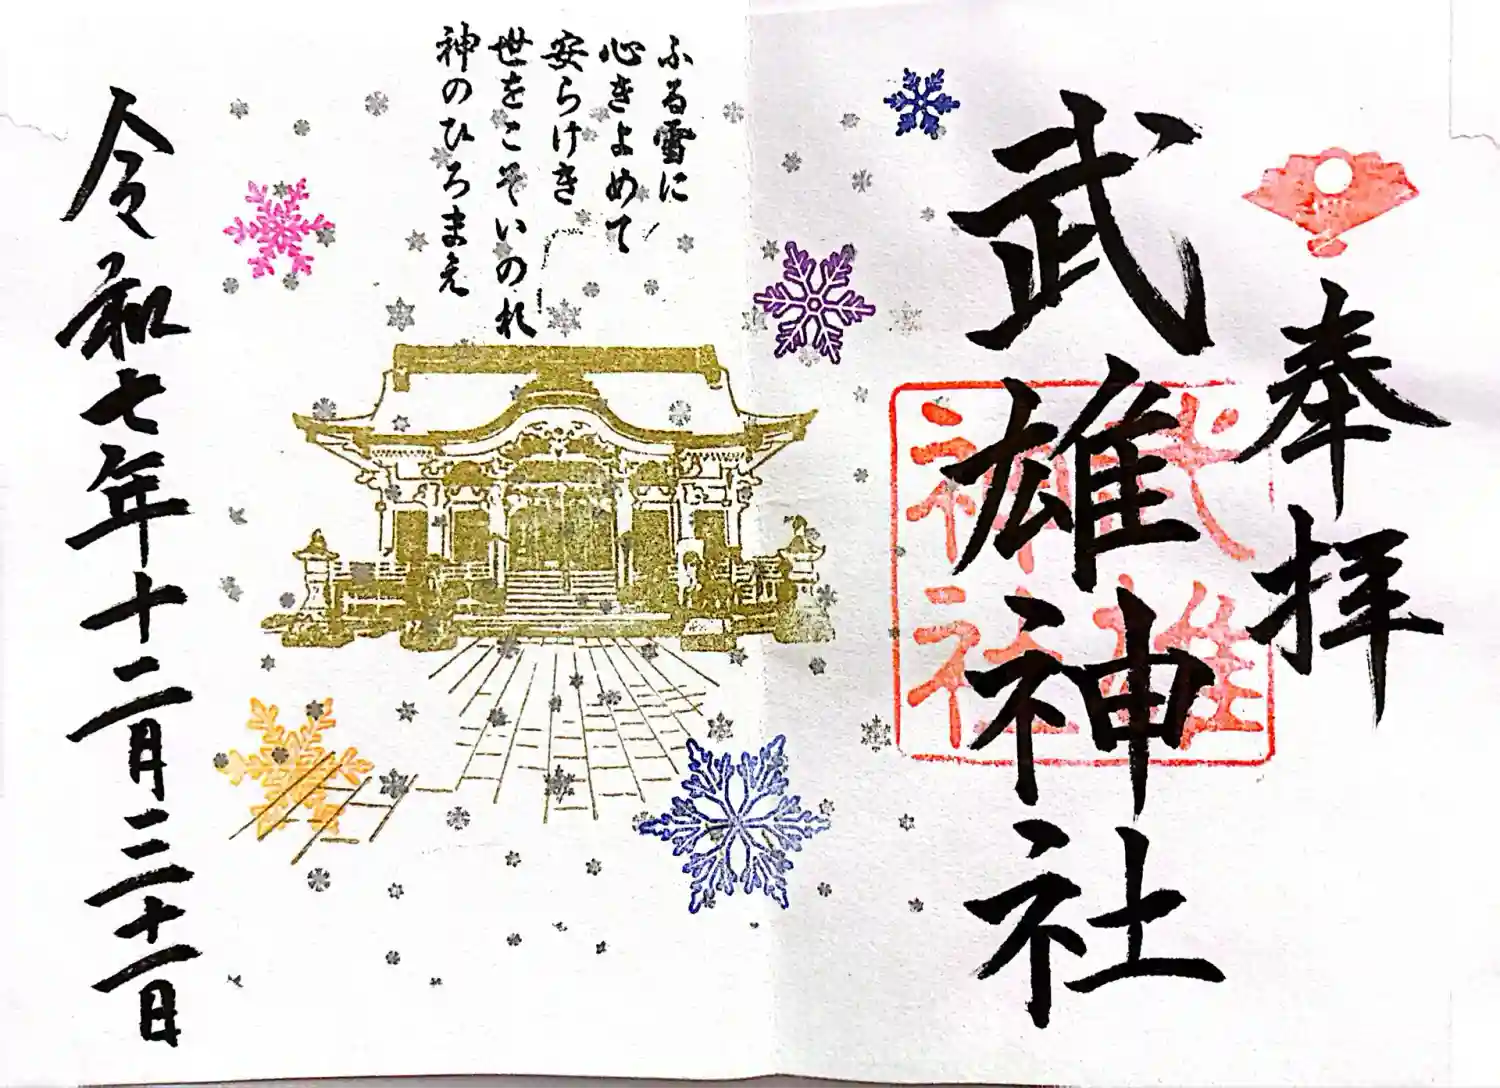 奉拝
武雄神社
武雄
神社
ふる雪に
心きよめて
安らけき
世をこそいのれ
神のひろまえ
令和七年十二月三十一日